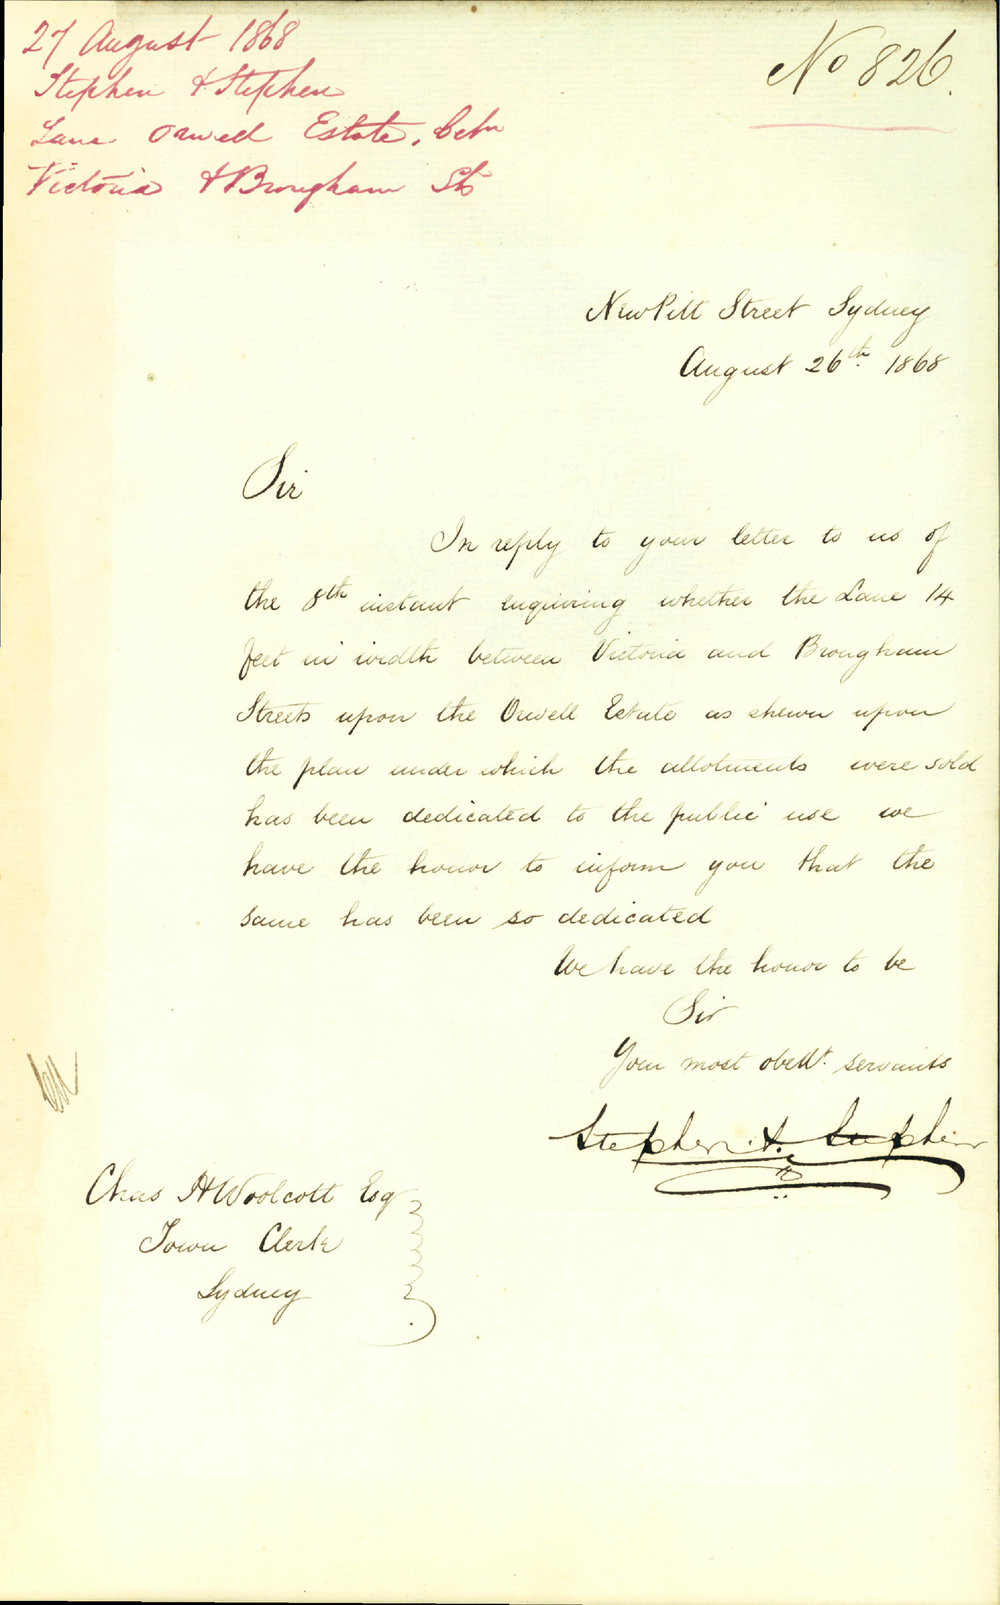 27 August 1868
Stephen & Stephen
Lane Orwell Estate, betn
Victoria & Brougham Sts
No 826.
New Pitt Street Sydney
August 26th. 1868
Sir
In reply to your letter to us of
the 8th instant enquiring whether the Lane 14
feet in width between Victoria and Brougham
Streets upon the Orwell Estate as shewn upon
the plan under which the allotments were sold
has been dedicated to the public use we
have the honor to inform you that the
same has been so dedicated
We have the honor to be
Sir
Your most obedt. servants
Stephen & Stephen
Chas H Woolcott Esq
Town Clerk
Sydney